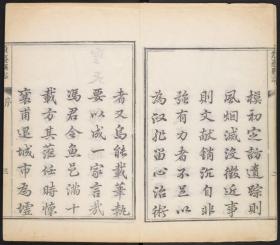 模初定訪遺踪則
風烟滅沒徵近事
則文献銷沉自非
強有力者不足以
為汲留心治術
者又烏能載筆執
要以成一家言哉
馮君令魚邑滿十
載方其蒞任時懷
襄甫退城市為墟
序